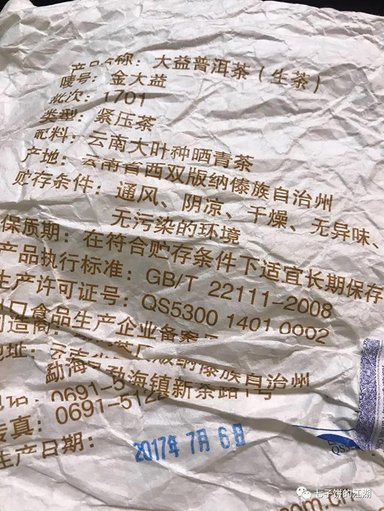 产品名称：大益普洱茶（生茶）
唛号：金大益
批次：1701
类型：紧压茶
配料：云南大叶种晒青茶
产地：云南省西双版纳傣族自治州
贮存条件：通风、阴凉、干燥、无异味、
无污染的环境
保质期：在符合贮存条件下适宜长期保存
产品执行标准：GB/T 22111-2008
生产许可证号：QS5300 1401 0002
口食品生产企业备案
制造商
地址：云南 版纳傣族自治州
勐海 勐海镇新茶路1号
电话：0691-5
传真：0691-512
生产日期：2017年7月6日
QS53
.com.cn
七子饼的江湖